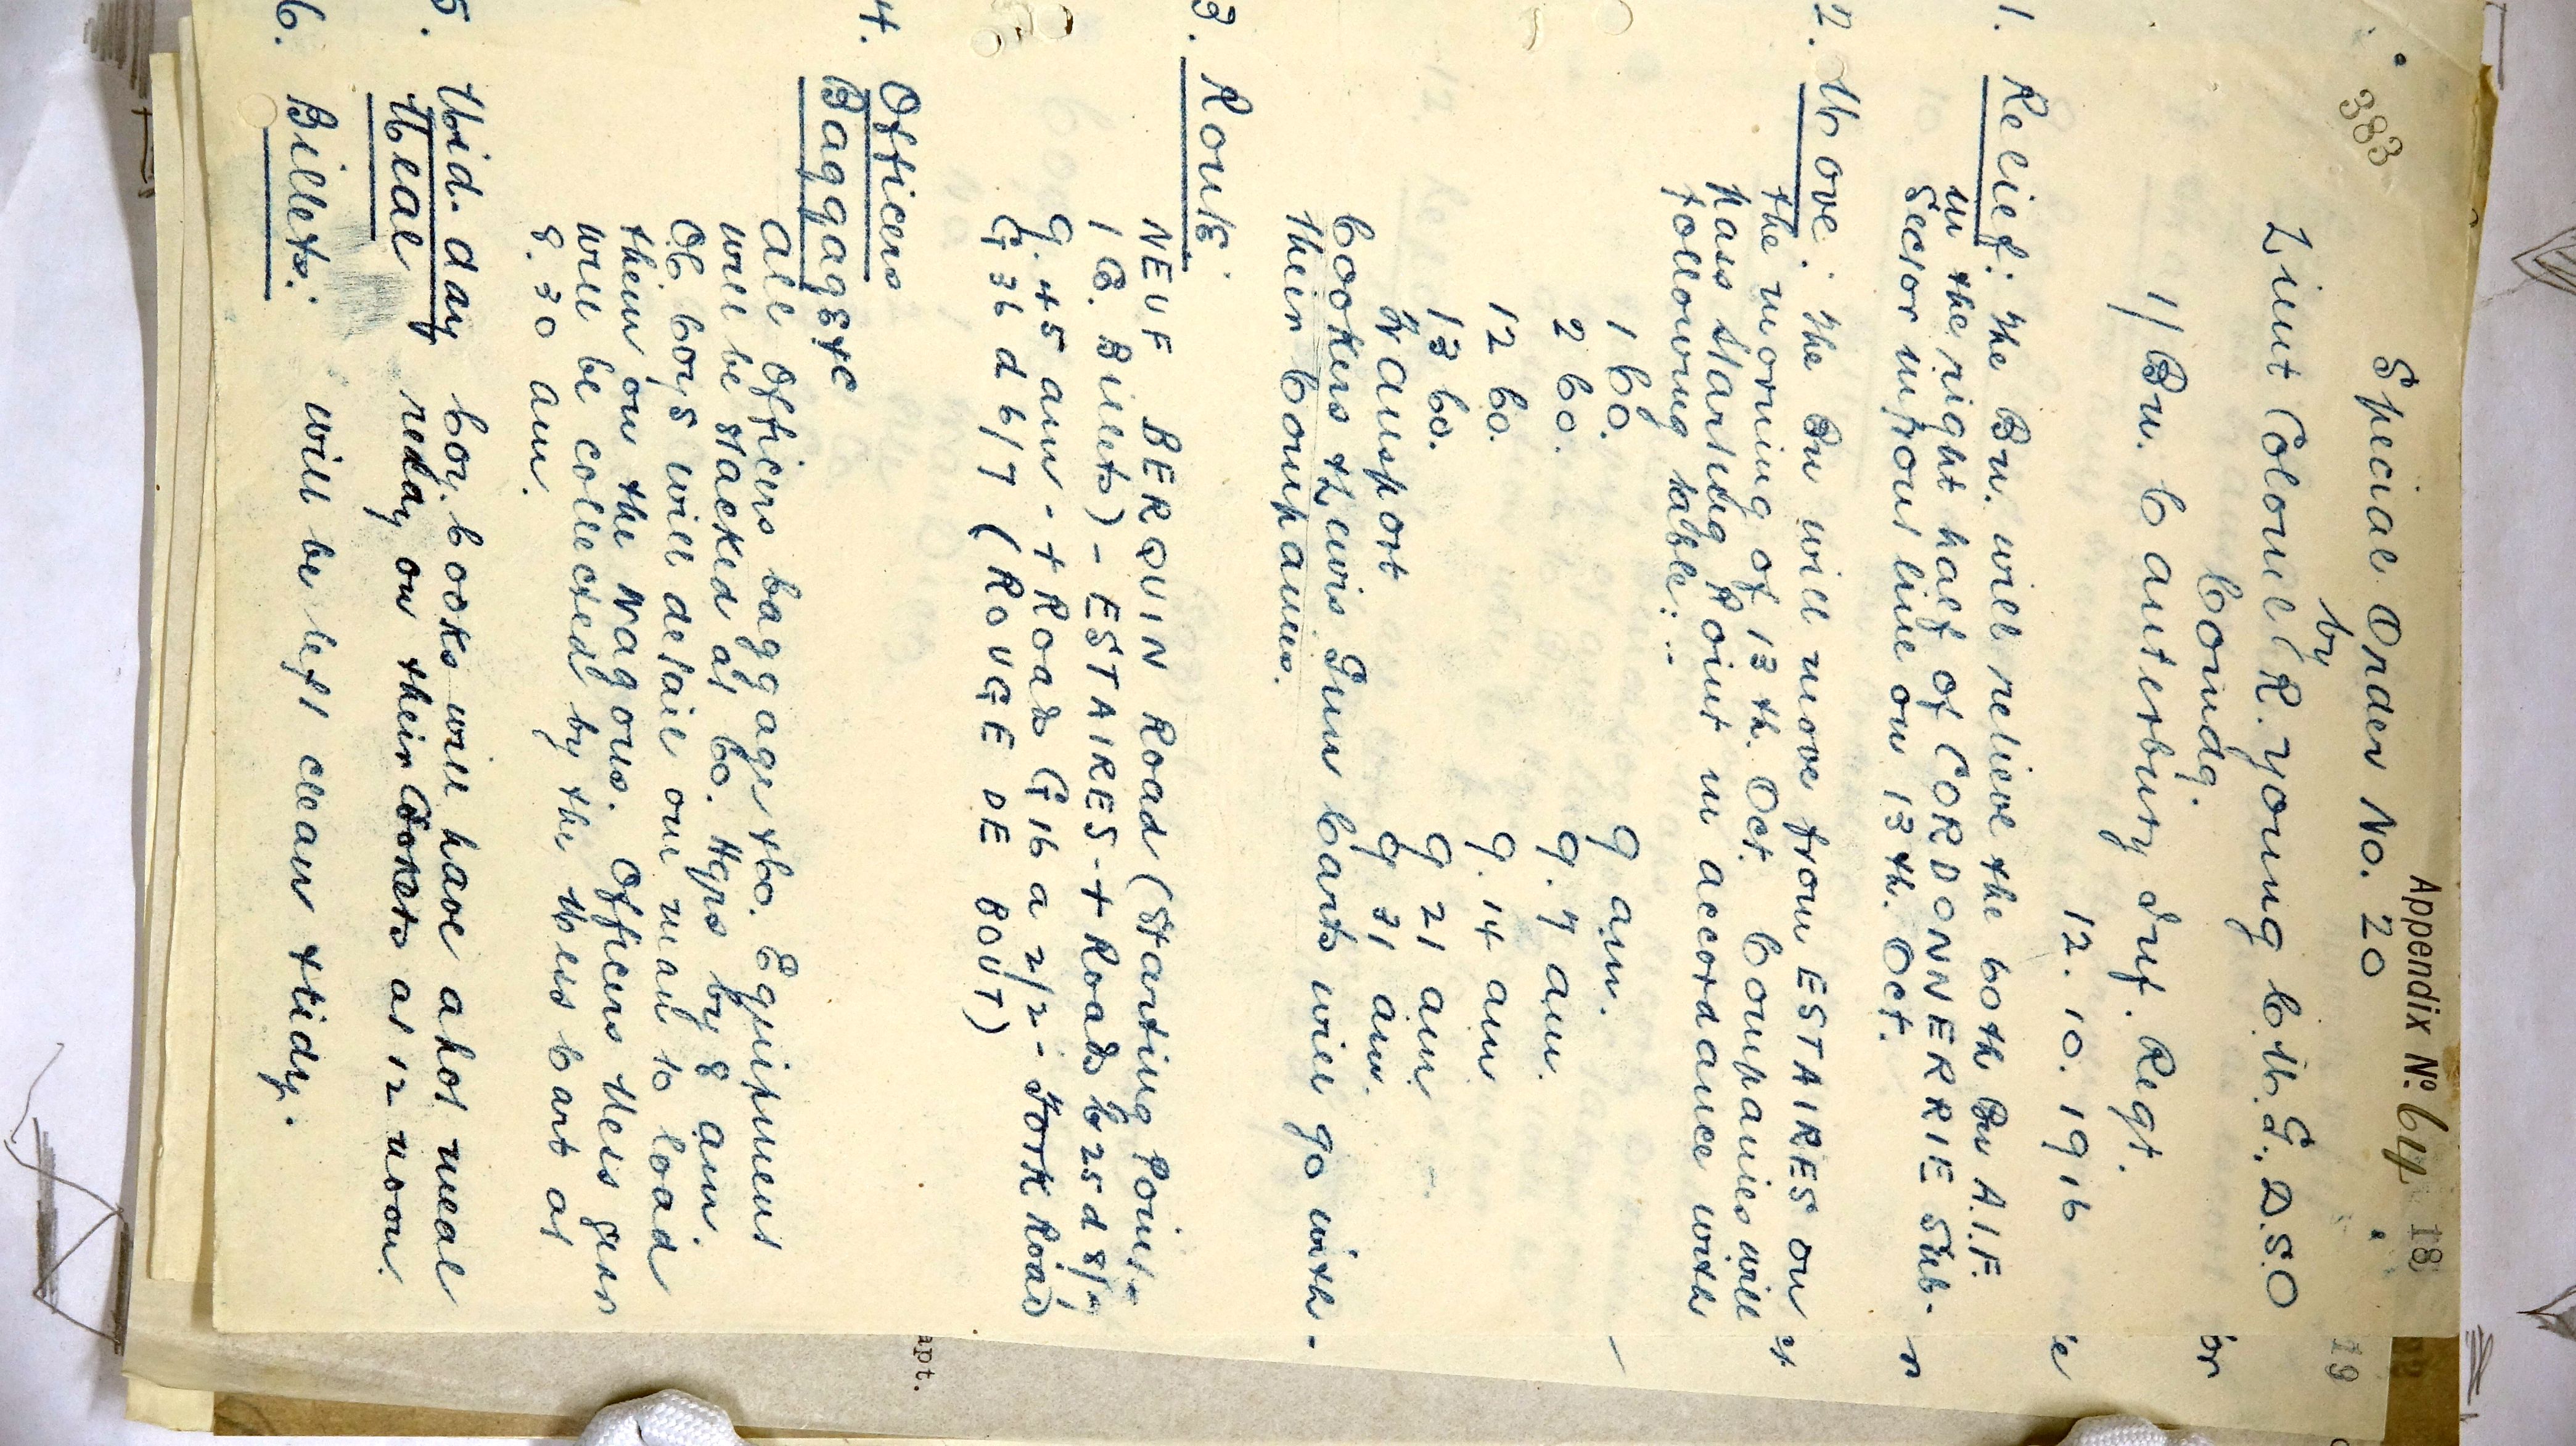 383
Appendix No. 64
18
Special Order No. 20
by
Lieut Colonel R. Young C.M.G. D.S.O
Comdg.
1/Bn. Canterbury Inf. Regt.
12.10.1916
1. Relief: The Bn. will relieve the 60th Bn A.I.F.
in the right half of CORDONNERIE Sub-
Sector in front line on 13th. Oct.
2. Move: The Bn will move from ESTAIRES on
the morning of 13th. Oct. Companies will
pass Starting Point in accordance with
following table:-
1 Co. 9 am.
2 Co. 9.7 am.
12 Co. 9.14 am
13 Co. 9 21 am
Transport 9 31 am.
Cookers & Lewis Gun Carts will go with
their Companies.
3. Route:
NEUF BERQUIN Road (Starting Point -
1 Co. Billets) - ESTAIRES - + Roads L 25 d 8/1
9.45 am - + Roads G 16 a 2/2 - York Road
G 36 d 6/7 (ROUGE DE BOUT)
4. Officers
Baggage &c
All Officers baggage & Co. Equipment
will be stacked at Co. Hqrs by 8 am.
OC Coys will detail one man to load
them on the Wagons. Officers Mess gear
will be collected by the Mess Cart at
8.30 am.
5. Mid-day Coy. Cooks will have a hot meal
Meal ready on their Cookers at 12 noon.
6. Billets: will be left clean & tidy.
apt.
19